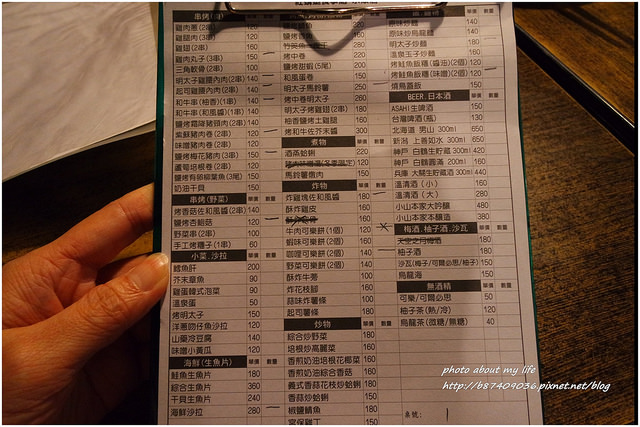 串燒(肉) 單價 數量
雞腿肉(3串) 120
雞翅(2串) 160
雞肉丸子(3串) 150
三角軟骨(2串) 100
明太子雞腿內肉(2串) 140
起司雞腿內肉(2串) 140
和牛串(柚香)(1串) 140
和牛串(和風醬)(1串) 140
鹽烤霜降豬頸肉(2串) 140
紫蘇豬肉卷(2串) 120
味噌豬肉卷(2串) 120
鹽烤梅花豬肉(3串) 150
蘆筍培根卷(2串) 120
鹽烤有卵柳葉魚(3尾) 150
奶油干貝 150
串烤(野菜) 單價 數量
烤香菇佐和風醬(2串) 140
鹽烤杏鮑菇 120
野菜串(2串) 100
手工烤糬子(1串) 60
小菜.沙拉 單價 數量
鱈魚肝 200
芥末章魚 90
雞蛋韓式泡菜 90
溫泉蛋 50
烤明太子 150
洋蔥吻仔魚沙拉 120
山藥冷豆腐 140
味噌小黃瓜 120
海鮮(生魚片) 單價 數量
鮭魚生魚片 180
綜合生魚片 360
干貝生魚片 240
海鮮沙拉 280
鹽烤香魚
烤中卷
鹽烤甜蝦(5尾)
和風蛋卷 150
明太子馬鈴薯 250
烤中卷明太子 260
明太子烤雞翅(2串) 180
柚香鹽烤土雞腿 160
烤和牛佐芥末醬 300
煮物 單價 數量
酒蒸蛤蜊 220
馬鈴薯燉肉 150
炸物 單價 數量
炸雞塊佐和風醬 180
酥炸雞皮 160
牛肉可樂餅(1個) 120
蝦味可樂餅(2個) 160
咖哩可樂餅(2個) 140
野菜可樂餅(2個) 140
酥炸牛蒡 100
炸花枝腳 160
蒜味炸薯條 100
起司薯條 180
炒物 單價 數量
綜合炒野菜 180
培根炒高麗菜 160
香煎奶油培根花椰菜 160
香煎奶油綜合香菇 160
義式香蒜花枝炒蛤蜊 180
香蒜炒蛤蜊 150
椒鹽鯖魚 180
宮保雞丁 150
原味炒麵 140
原味炒烏龍麵 140
明太子炒麵 180
溫泉玉子炒麵 160
烤鮭魚飯糰(醬油)(2個) 120
烤鮭魚飯糰(味噌)(2個) 120
燒鳥蓋飯 150
BEER.日本酒 單價 數量
ASAHI生啤酒 150
台灣啤酒(瓶) 130
北海道 男山 300ml 650
新潟 上善如水 300ml 650
神戶 白鶴生貯蔵 300ml 420
神戶 白鶴圓滿 200ml 160
兵庫 大關生貯蔵酒 300ml 440
溫清酒(小) 160
溫清酒(大) 280
小山本家大吟釀 480
小山本家本釀造 380
梅酒.柚子酒.沙瓦 單價 數量
天使之月梅酒 180
柚子酒 180
沙瓦(梅子/可爾必思/柚子) 150
烏龍海 150
無酒精 單價 數量
可樂/可爾必思 50
柚子茶(熱/冷) 120
烏龍茶(微糖/無糖) 40
桌號:
photo about my life
http://b87409036.pixnet.net/blog